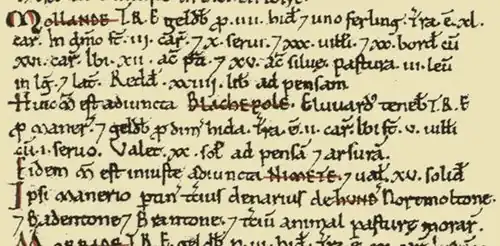 Mollande T.R.E geldb͂ p̱ . iiii . hid͂ ⁊ uno ferling . t͂ra . ē . xl .
car͂ . In dn͂io st͂ . iii . car͂ . ⁊ x . serui . ⁊ xxx . uitt͂i . ⁊ xx . bord͂ cū
xvi . car͂ . Ibi . xii . ac͂ p͂ti . ⁊ xv . ac͂ siluę . pastura . iii . leuū
in lḡ . ⁊ lat͂ . Redd͂ . xxiiii . lib͂ ad pensam
Huic m͂ est adiuncta Blachepole . Eluuard' teneb͂ T.R.E
p̱ maner͂ . ⁊ geldb͂ p̱ dim͂ hida . t͂ra . ē . ii . car͂ . Ibi st͂ . v . uitt͂i
cū . i . seruo . Valet . xx . sol͂ ad pensā ⁊ arsurā .
Eidem m͂ est iniuste adiuncta Nimete . ⁊ ual͂ . xv . solid͂
Ipsi manerio ptin͂ t͂cius denarius de hund͂ Nortmoltone .
⁊ Badentone ⁊ Brantone . ⁊ t͂ciū animal pasturę morar͂ .